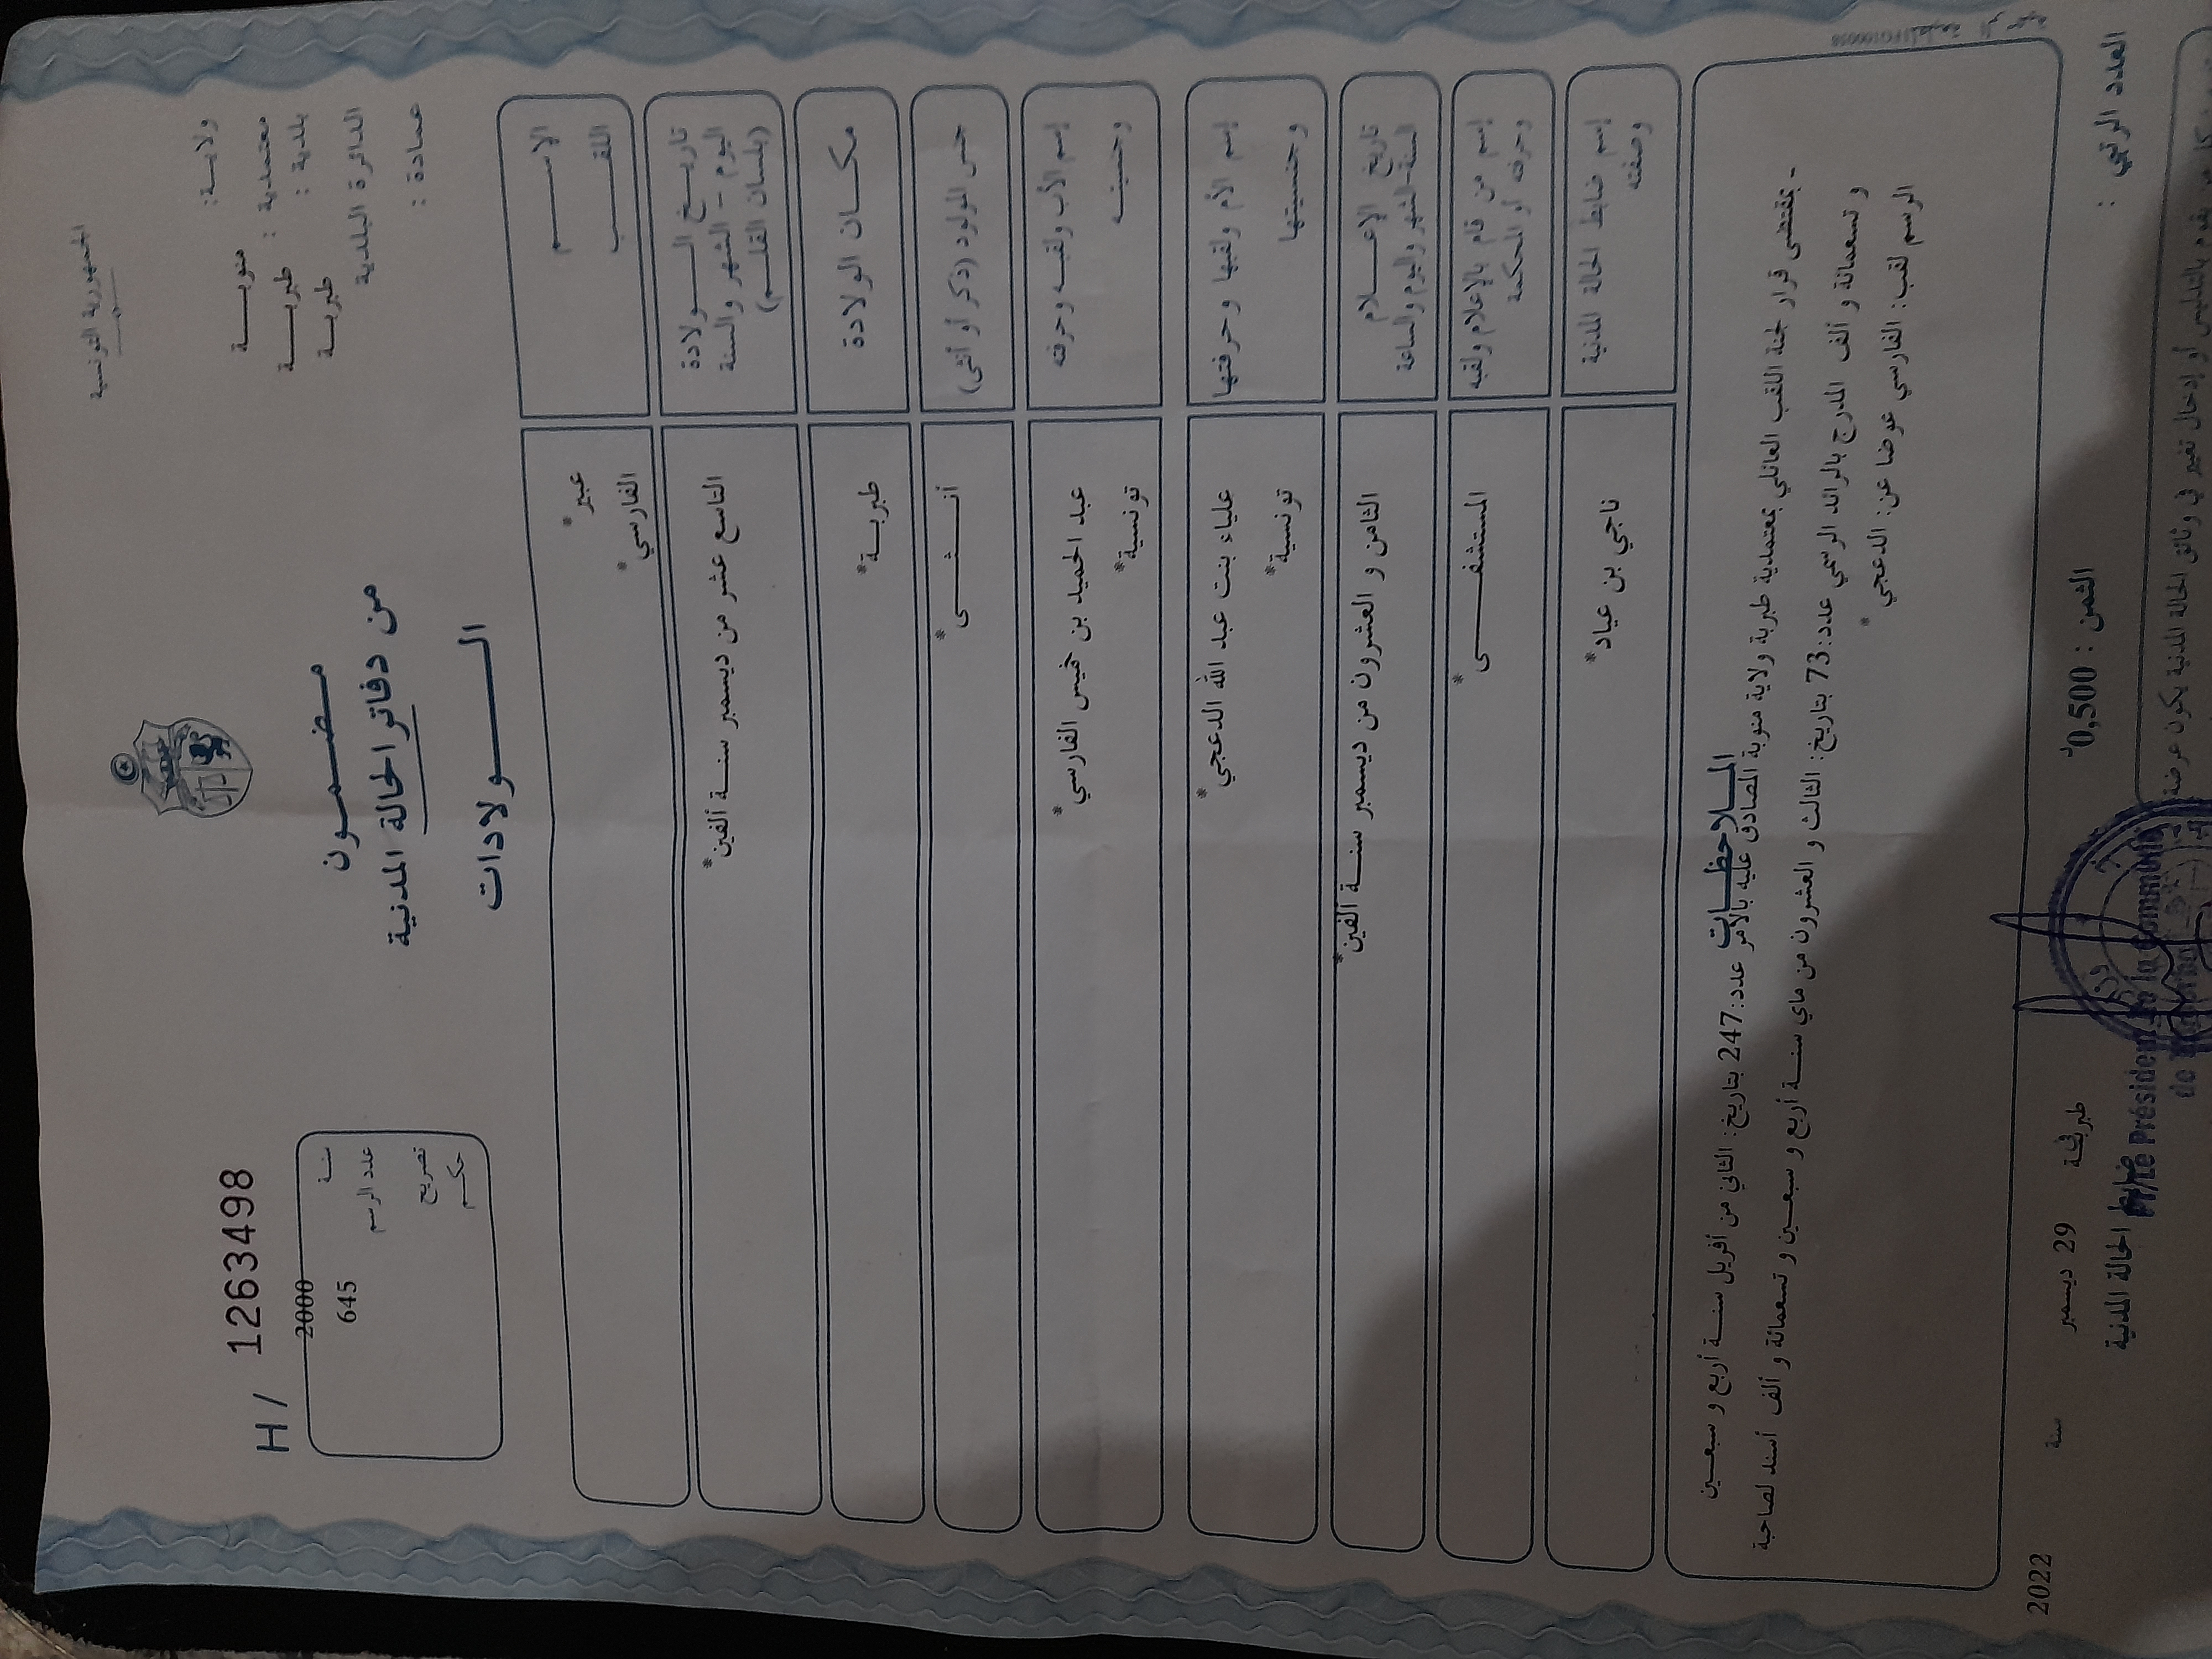 الجمهورية التونسية
ولاية: منوبة
معتمدية: طبربة
بلدية: طبربة
الدائرة البلدية
عمادة:
H/ 1263498
سنة 2000
عدد الرسم 645
تصريح
حكم
مضمون
من دفاتر الحالة المدنية
الولادات
الاسم عبير*
اللقب الفارسي*
تاريخ الولادة
اليوم - الشهر والسنة
(بلسان القلم)
التاسع عشر من ديسمبر سنة ألفين*
مكان الولادة طبربة*
جنس المولود (ذكر أو أنثى) أنثى*
إسم الأب ولقبه وحرفته عبد الحميد بن خميس الفارسي*
وجنسيته تونسية*
إسم الأم ولقبها وحرفتها علياء بنت عبد الله الدعجي*
وجنسيتها تونسية*
تاريخ الإعلام
السنة-الشهر واليوم والساعة
الثامن و العشرون من ديسمبر سنة ألفين*
إسم من قام بالإعلام ولقبه المستشفى*
وحرفته أو المحكمة
إسم ضابط الحالة المدنية ناجي بن عياد*
وصفته
الملاحظات
- بمقتضى قرار لجنة اللقب العائلي بمعتمدية طبربة ولاية منوبة المصادق عليه بالأمر عدد:247 بتاريخ: الثاني من أفريل سنة أربع و سبعين
و تسعمائة و ألف المدرج بالرائد الرسمي عدد:73 بتاريخ: الثالث و العشرون من ماي سنة أربع و سبعين و تسعمائة و ألف أسند لصاحبة
الرسم لقب: الفارسي عوضا عن: الدعجي*
العدد الرتبي :
الثمن : 0,500د
29 ديسمبر سنة 2022
ضابط الحالة المدنية
P/Le Président de la commune
de